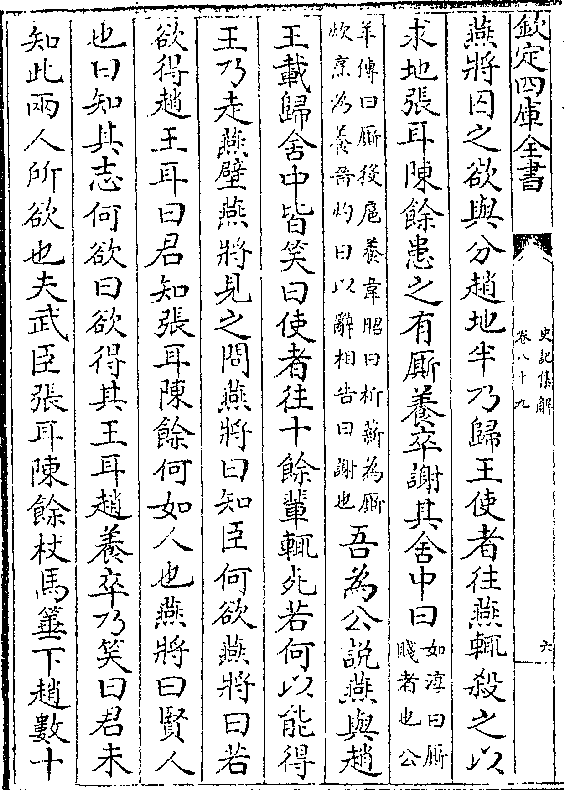 欽定四庫全書
史記集解
卷八十九
六
燕將囚之欲與分趙地半乃歸王使者往燕輒殺之以
求地張耳陳餘患之有厮養卒謝其舍中曰
如淳曰厮
賤者也公
羊傳曰厮役扈養韋昭曰析薪為厮
炊烹為養晉灼曰以辭相告曰謝也
吾為公說燕與趙
王載歸舍中皆笑曰使者往十餘輩輒死若何以能得
王乃走燕壁燕將見之問燕將曰知臣何欲燕將曰若
欲得趙王耳曰君知張耳陳餘何如人也燕將曰賢人
也曰知其志何欲曰欲得其王耳趙養卒乃笑曰君未
知此兩人所欲也夫武臣張耳陳餘杖馬箠下趙數十